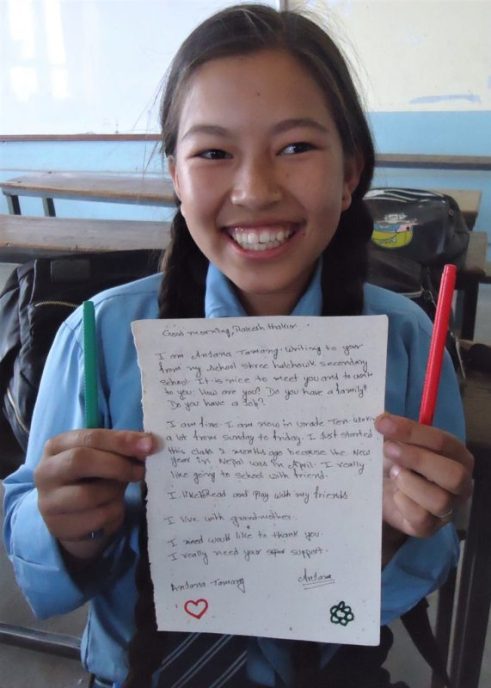 Good morning, Rakesh Thakur
I am Antana Tamang. Writing to your
from my school shree halchowk secondary
school. It is nice to meet you and to write
to you. How are you? Do you have a family?
Do you have a job?
I am fine. I am now in Grade Ten. Working
a lot from Sunday to friday. I Just started
this class 2 months ago because the New
year in Nepal was in April. I really
like going to school with friend.
I like Read and Play with my friends
I live with grandmother.
I need would like to thank you.
I really need your support.
Antana Tamang
Antana